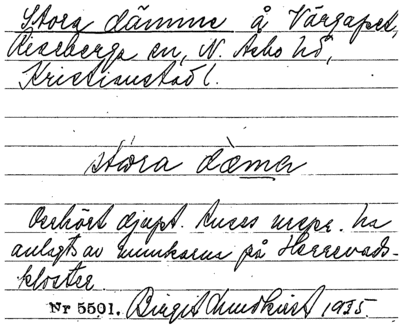 Stora dämme å Värgapet,
Riseberga sn, N. Åsbo hd,
Kristianstad l.
stóra dæmə
Oerhört djupt. Anses ha
anlagts av munkarna på Herrevads-
kloster.
Nr 5501. Birgit Lundkvist 1935.